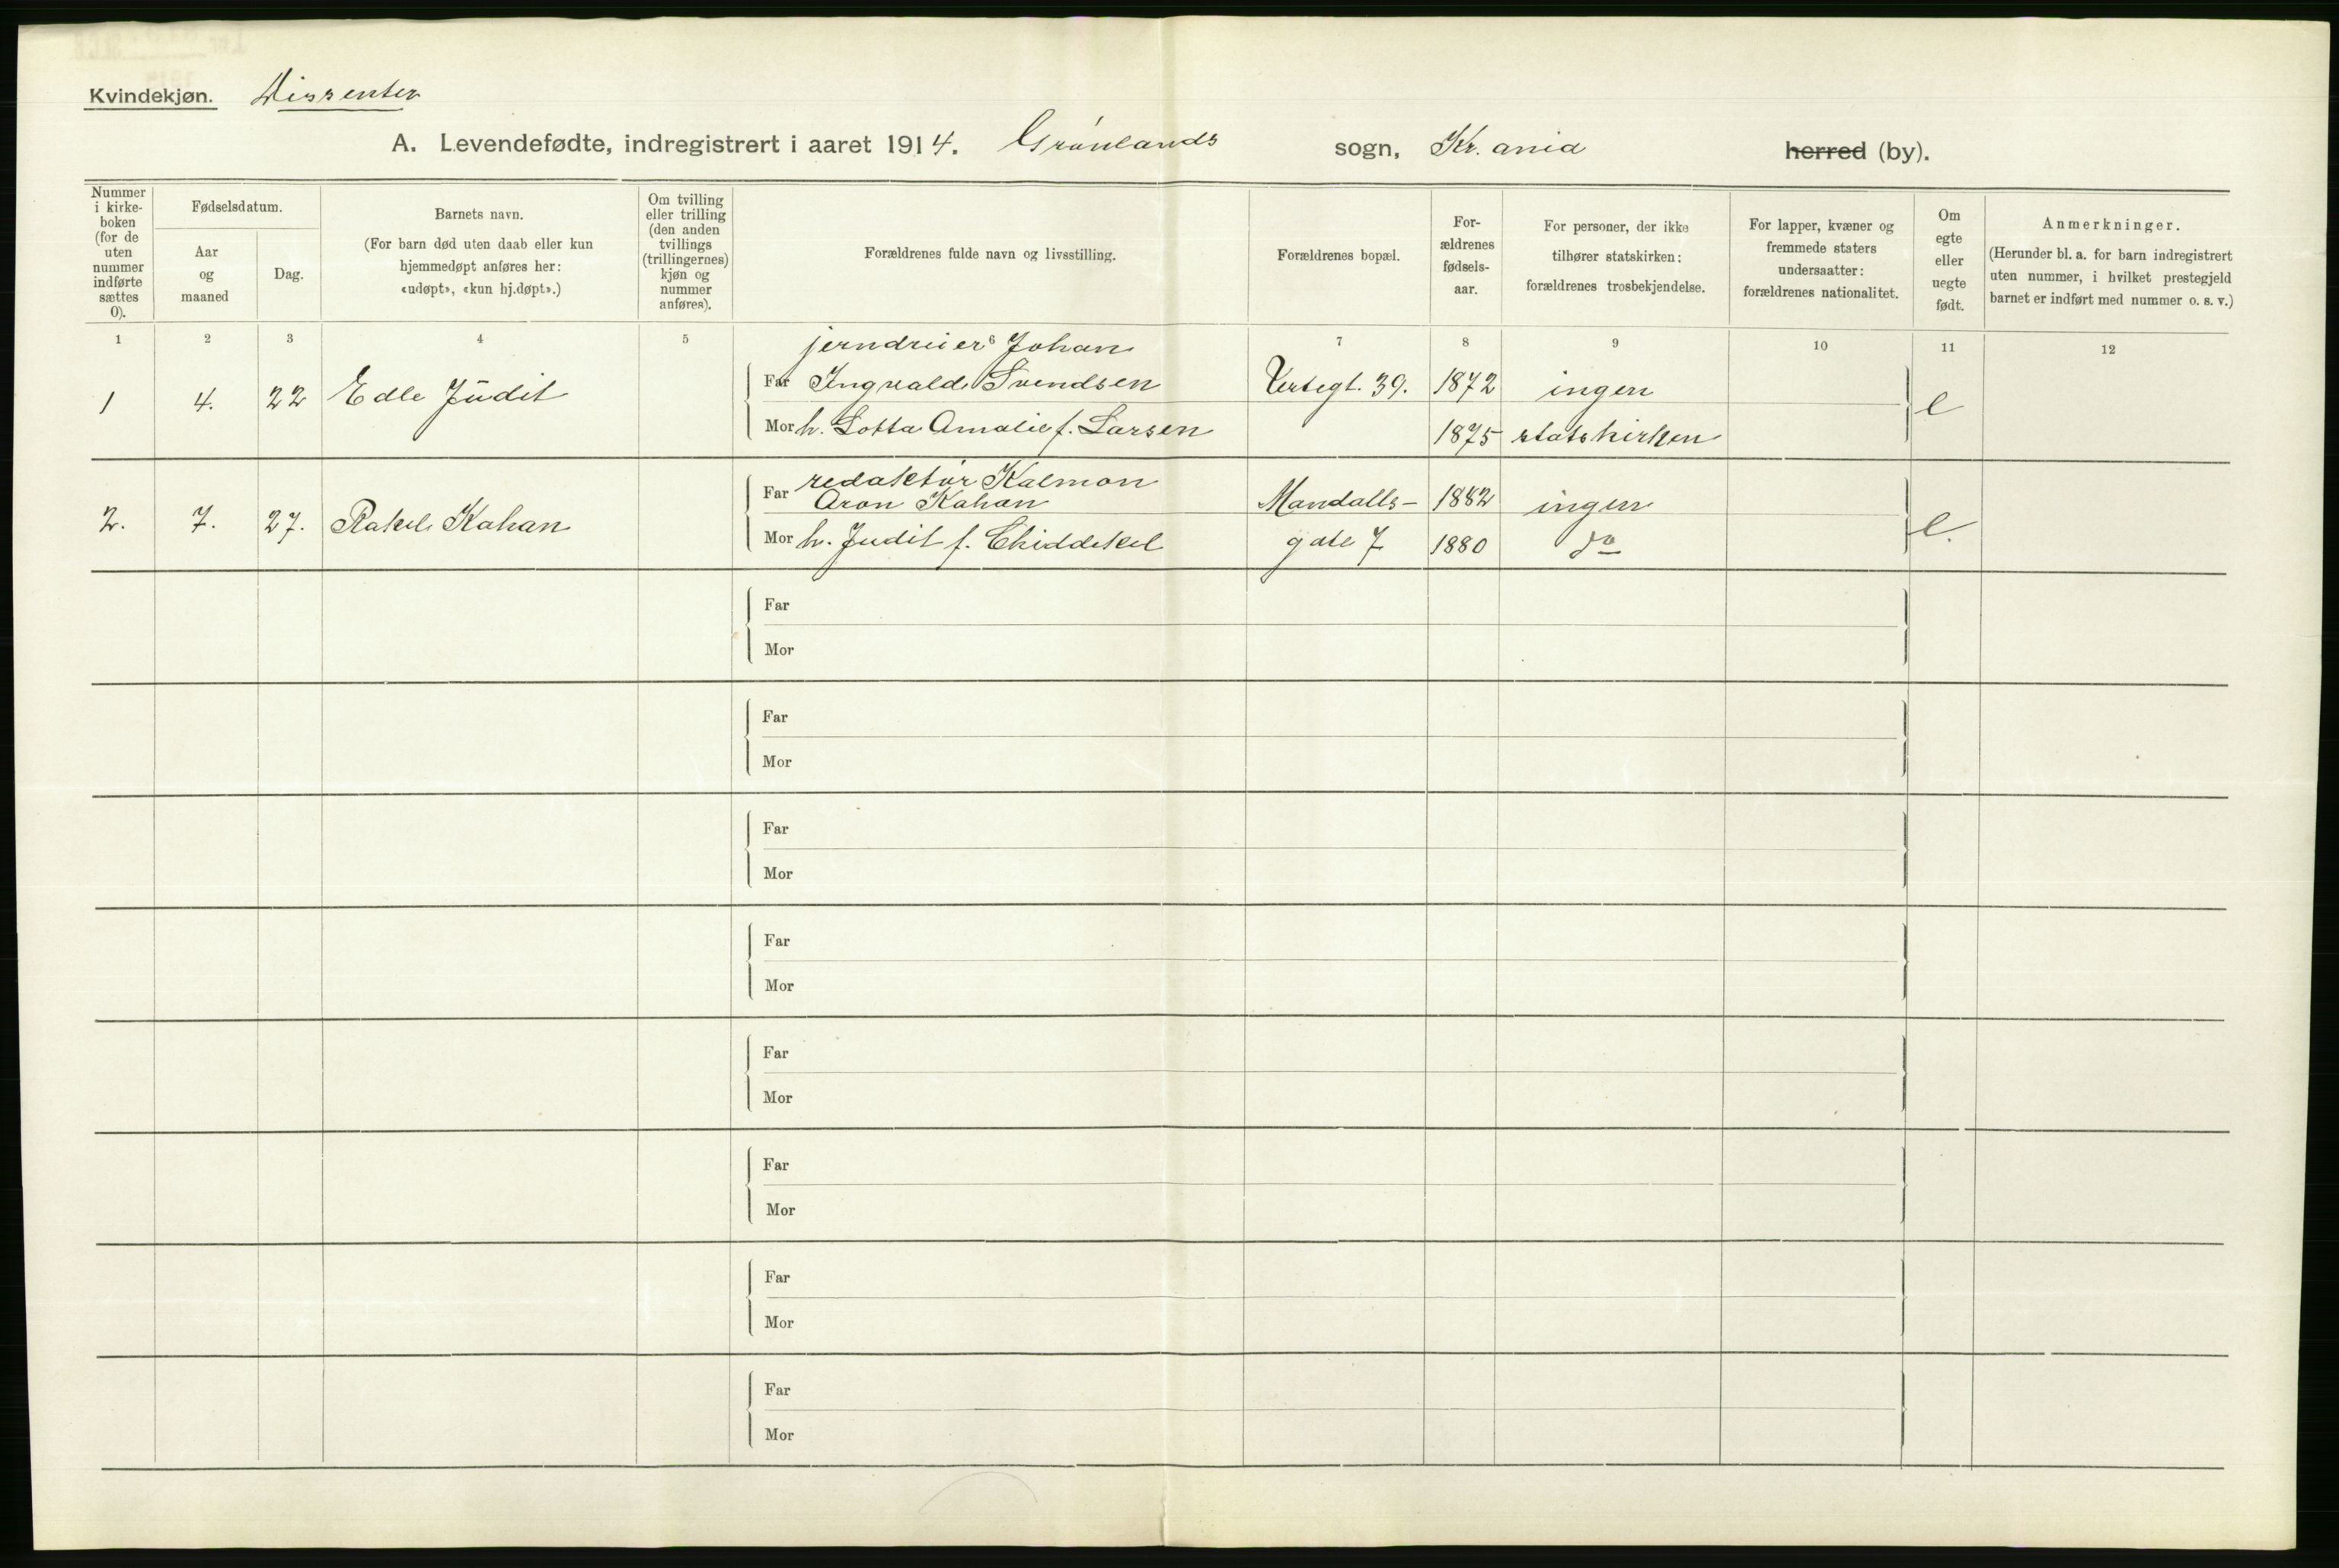 Kvindekjøn. Dissenter
A. Levendefødte, indregistrert i aaret 1914. Grønlands sogn, Kr.ania herred (by).
Nummer
i kirke-
boken
(for de
uten
nummer
indførte
sættes
0).
Fødselsdatum.
Aar
og
maaned
Dag.
Barnets navn.
(For barn død uten daab eller kun
hjemmedøpt anføres her:
«udøpt», «kun hj.døpt».)
Om tvilling
eller trilling
(den anden
tvillings
(trillingernes)
kjøn og
nummer
anføres).
Forældrenes fulde navn og livsstilling.
Forældrenes bopæl.
For-
ældrenes
fødsels-
aar.
For personer, der ikke
tilhører statskirken:
forældrenes trosbekjendelse.
For lapper, kvæner og
fremmede staters
undersaatter:
forældrenes nationalitet.
Om
egte
eller
uegte
født.
Anmerkninger.
(Herunder bl. a. for barn indregistrert
uten nummer, i hvilket prestegjeld
barnet er indført med nummer o. s. v.)
1 2 3 4 5 6 7 8 9 10 11 12
jerndreier Johan
1 4. 22 Edle Judit Far Ingvald Svendsen 39. 1872 ingen e
Mor h. Lotta Amalie f. Larsen 1875 statskirken
redaktør Kalmon
2. 7. 27. Rakel Kahan Far Aron Kahan Mandalls- 1882 ingen e.
Mor h. Judit f. Chiddekel gate 7 1880 do
Far
Mor
Far
Mor
Far
Mor
Far
Mor
Far
Mor
Far
Mor
Far
Mor
Far
Mor